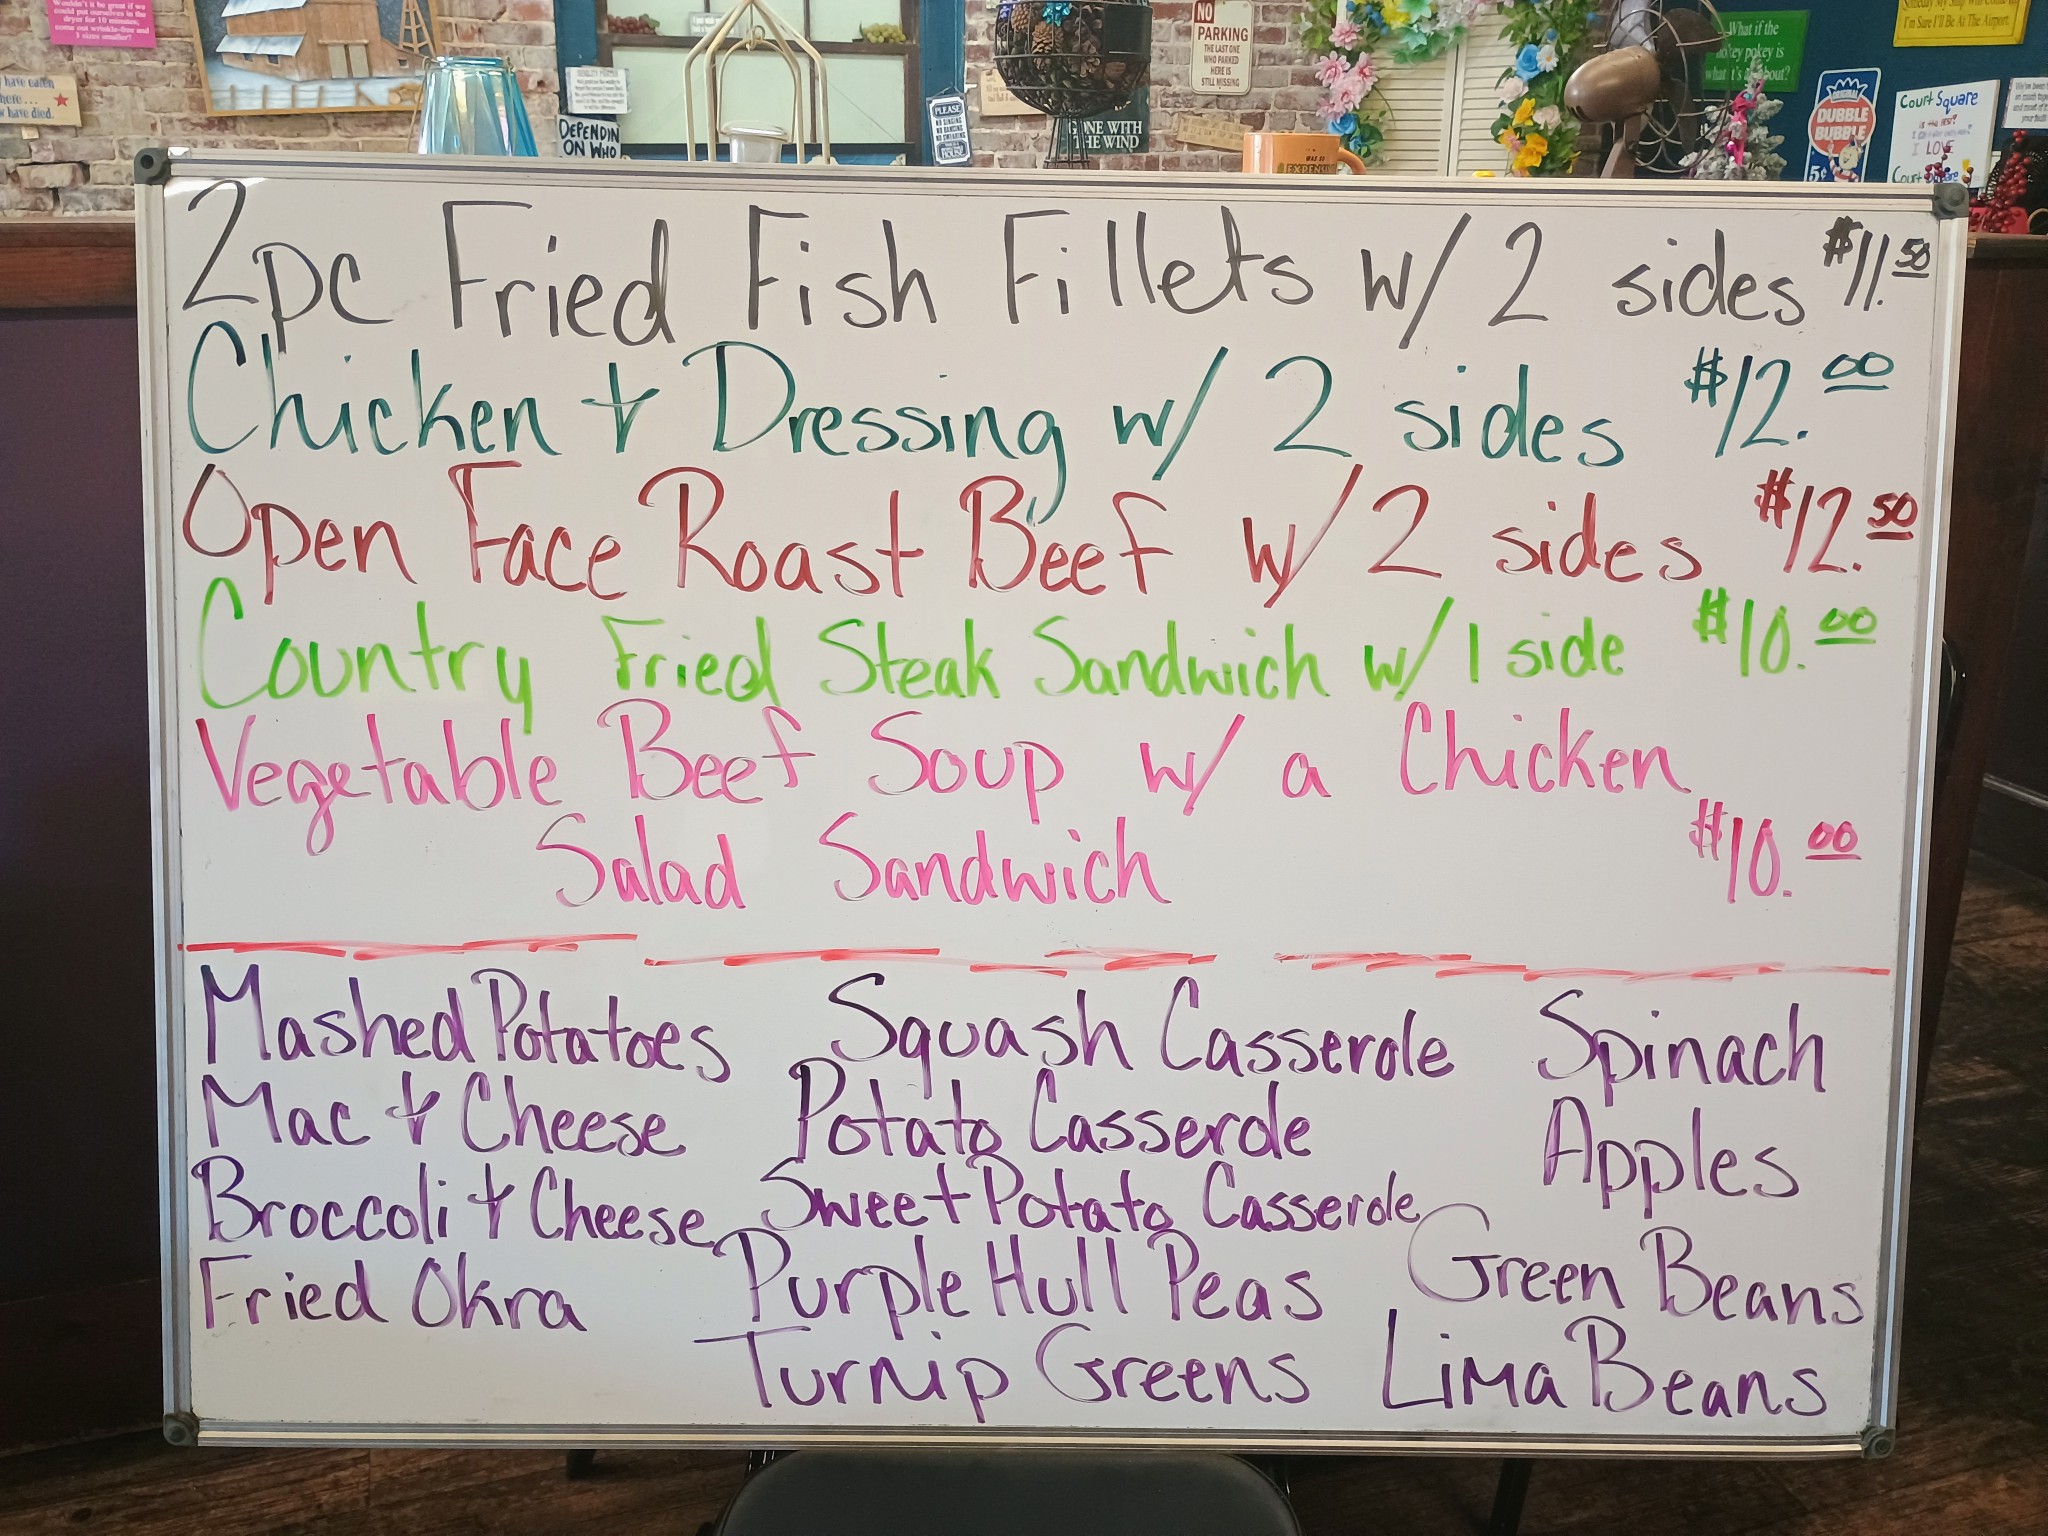 Wouldn't it be great if we
could put ourselves in the
dryer for 10 minutes;
come out wrinkle-free and
3 sizes smaller?
have eaten
here...
have died.
DEPENDIN
ON WHO
PLEASE
NO SINGING
NO DANCING
NO SWEARING
GONE WITH
THE WIND
NO
PARKING
THE LAST ONE
WHO PARKED
HERE IS
STILL MISSING
WAS SO
EXPENSI
What if the
okey pokey is
what it's about?
I'm Sure I'll Be At The Airport.
DUBBLE
BUBBLE
5¢
Court Square
I LOVE
Court Square
2pc Fried Fish Fillets w/ 2 sides $11.50
Chicken & Dressing w/ 2 sides $12.00
Open Face Roast Beef w/ 2 sides $12.50
Country Fried Steak Sandwich w/ 1 side $10.00
Vegetable Beef Soup w/ a Chicken
Salad Sandwich $10.00
Mashed Potatoes Squash Casserole Spinach
Mac & Cheese Potato Casserole Apples
Broccoli & Cheese Sweet Potato Casserole
Fried Okra Purple Hull Peas Green Beans
Turnip Greens Lima Beans